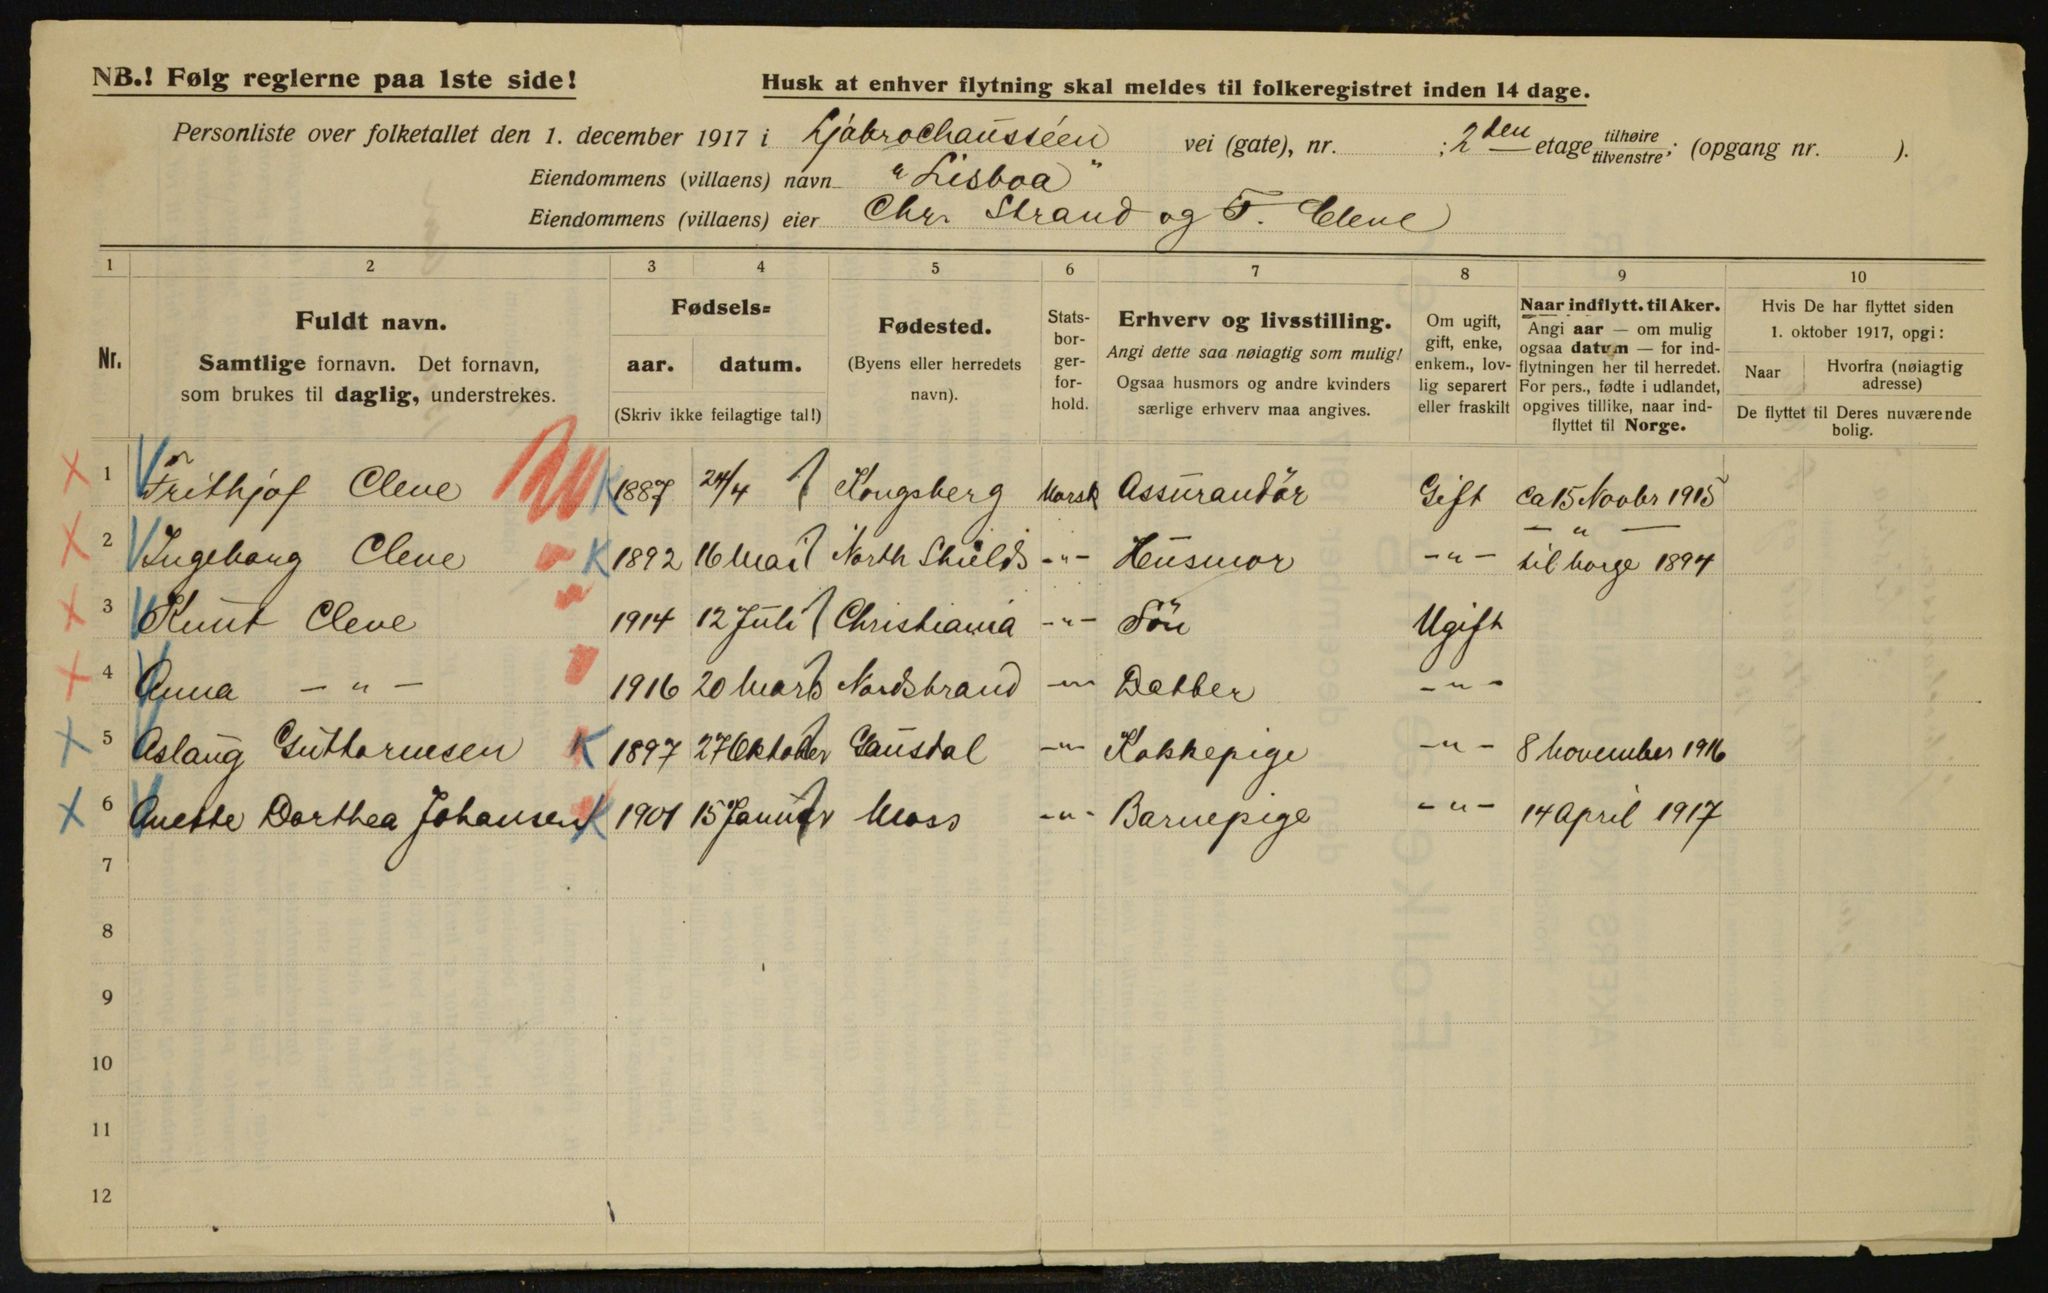 NB.! Følg reglerne paa 1ste side!
Husk at enhver flytning skal meldes til folkeregistret inden 14 dage.
Personliste over folketallet den 1. december 1917 i Ljabrochausséen vei (gate), nr. ; 2den etage tilhøire tilvenstre; (opgang nr. ).
Eiendommens (villaens) navn "Lisboa"
Eiendommens (villaens) eier Chr. Strand og F. Cleve
1 2 3 4 5 6 7 8 9 10
Nr.
Fuldt navn.
Samtlige fornavn. Det fornavn,
som brukes til daglig, understrekes.
Fødsels=
aar. datum.
(Skriv ikke feilagtige tal!)
Fødested.
(Byens eller herredets
navn).
Stats-
bor-
ger-
for-
hold.
Erhverv og livsstilling.
Angi dette saa nøiagtig som mulig!
Ogsaa husmors og andre kvinders
særlige erhverv maa angives.
Om ugift,
gift, enke,
enkem., lov-
lig separert
eller fraskilt
Naar indflytt. til Aker.
Angi aar — om mulig
ogsaa datum — for ind-
flytningen her til herredet.
For pers., fødte i udlandet,
opgives tillike, naar ind-
flyttet til Norge.
Hvis De har flyttet siden
1. oktober 1917, opgi:
Naar Hvorfra (nøiagtig
adresse)
De flyttet til Deres nuværende
bolig.
1 Frithjof Cleve K 1887 24/4 Kongsberg Norsk Assurandör Gift Ca 15 Novbr 1915
2 Ingeborg Cleve K 1892 16 Mai North Shields -"- Husmor -"- — " —
til Norge 1894
3 Knut Cleve 1914 12 Juli Christiania -"- Sön Ugift
4 Anna -"- 1916 20 Marts Nordstrand -"- Datter -"-
5 Aslaug Guttormsen K 1897 27 Oktober Gausdal -"- Kokkepige -"- 8 November 1916
6 Anette Dorthea Johansen K 1901 15 Januar Moss -"- Barnepige -"- 14 April 1917
7
8
9
10
11
12